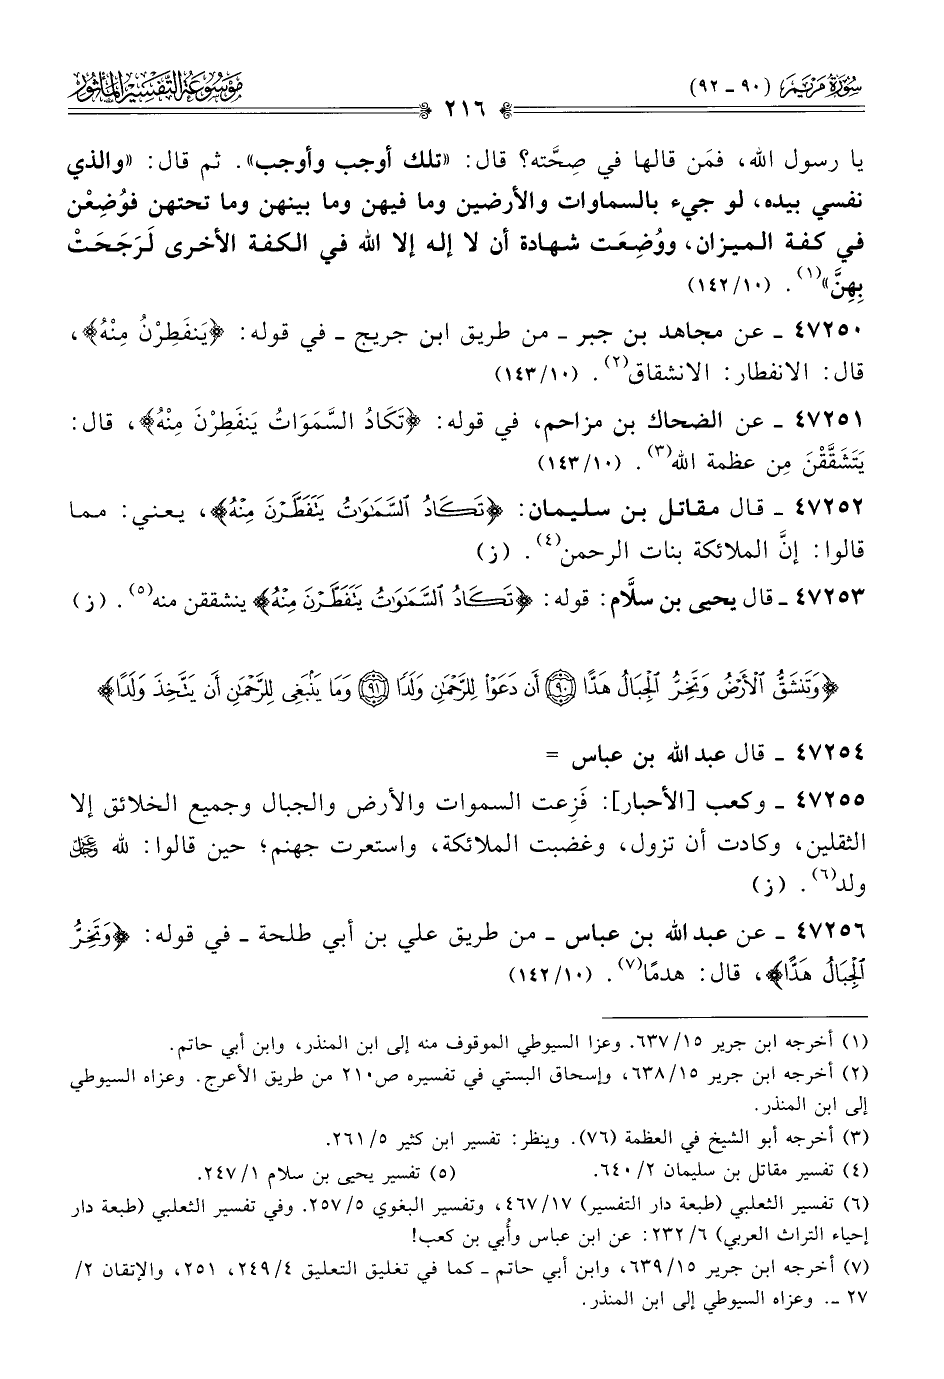 سُورَةُ مَرْيَمَ (٩٠ ـ ٩٢)
٢١٦
مَوْسُوعَةُ التَّفْسِيرِ المَأْثُور
يا رسول الله، فمَن قالها في صِحَّته؟ قال: «تلك أوجب وأوجب». ثم قال: «والذي
نفسي بيده، لو جيء بالسماوات والأرضين وما فيهن وما بينهن وما تحتهن فوُضِعْن
في كفة الميزان، ووُضِعَت شهادة أن لا إله إلا الله في الكفة الأخرى لَرَجَحَتْ
بِهِنَّ»(١). (١٤٢/١٠)
٤٧٢٥٠ ـ عن مجاهد بن جبر ـ من طريق ابن جريج ـ في قوله: ﴿يَنفَطِرْنُ مِنْهُ﴾،
قال: الانفطار: الانشقاق(٢). (١٤٣/١٠)
٤٧٢٥١ ـ عن الضحاك بن مزاحم، في قوله: ﴿تَكَادُ السَّمَوَاتُ يَنفَطِرْنَ مِنْهُ﴾، قال:
يَتَشَقَّقْنَ مِن عظمة الله(٣). (١٤٣/١٠)
٤٧٢٥٢ ـ قال مقاتل بن سليمان: ﴿تَكَادُ ٱلسَّمَٰوَٰتُ يَتَفَطَّرْنَ مِنْهُ﴾، يعني: مما
قالوا: إنَّ الملائكة بنات الرحمن(٤). (ز)
٤٧٢٥٣ ـ قال يحيى بن سلَّام: قوله: ﴿تَكَادُ ٱلسَّمَٰوَٰتُ يَتَفَطَّرْنَ مِنْهُ﴾ ينشققن منه(٥). (ز)
﴿وَتَنشَقُّ ٱلْأَرْضُ وَتَخِرُّ ٱلْجِبَالُ هَدًّا ۝٩٠ أَن دَعَوْا۟ لِلرَّحْمَٰنِ وَلَدًا ۝٩١ وَمَا يَنۢبَغِى لِلرَّحْمَٰنِ أَن يَتَّخِذَ وَلَدًا﴾
٤٧٢٥٤ ـ قال عبد الله بن عباس =
٤٧٢٥٥ ـ وكعب [الأحبار]: فَزِعت السموات والأرض والجبال وجميع الخلائق إلا
الثقلين، وكادت أن تزول، وغضبت الملائكة، واستعرت جهنم؛ حين قالوا: لله ﷿
ولد(٦). (ز)
٤٧٢٥٦ ـ عن عبد الله بن عباس ـ من طريق علي بن أبي طلحة ـ في قوله: ﴿وَتَخِرُّ
ٱلْجِبَالُ هَدًّا﴾، قال: هدمًا(٧). (١٤٢/١٠)
(١) أخرجه ابن جرير ٦٣٧/١٥. وعزا السيوطي الموقوف منه إلى ابن المنذر، وابن أبي حاتم.
(٢) أخرجه ابن جرير ٦٣٨/١٥، وإسحاق البستي في تفسيره ص٢١٠ من طريق الأعرج. وعزاه السيوطي
إلى ابن المنذر.
(٣) أخرجه أبو الشيخ في العظمة (٧٦). وينظر: تفسير ابن كثير ٢٦١/٥.
(٤) تفسير مقاتل بن سليمان ٦٤٠/٢. (٥) تفسير يحيى بن سلام ٢٤٧/١.
(٦) تفسير الثعلبي (طبعة دار التفسير) ٤٦٧/١٧، وتفسير البغوي ٢٥٧/٥. وفي تفسير الثعلبي (طبعة دار
إحياء التراث العربي) ٢٣٢/٦: عن ابن عباس وأُبي بن كعب!
(٧) أخرجه ابن جرير ٦٣٩/١٥، وابن أبي حاتم ـ كما في تغليق التعليق ٢٤٩/٤، ٢٥١، والإتقان ٢/
٢٧ ـ. وعزاه السيوطي إلى ابن المنذر.